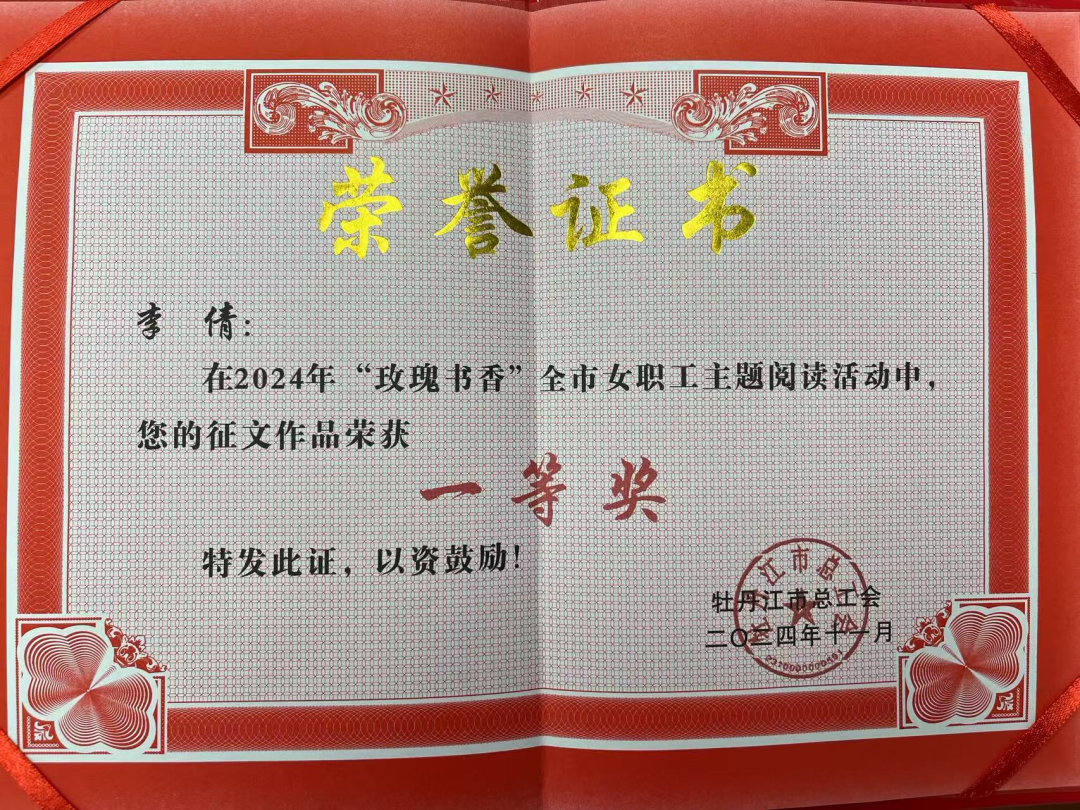 荣誉证书
李 倩:
在2024年“玫瑰书香”全市女职工主题阅读活动中,
您的征文作品荣获
一等奖
特发此证，以资鼓励!
牡丹江市总工会
二〇二四年十一月
牡丹江市总工会